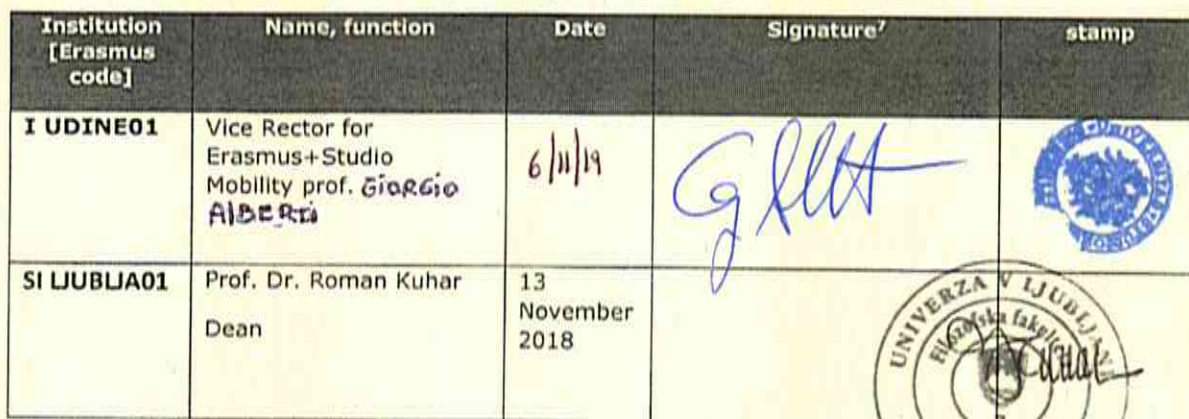 Institution [Erasmus code]
Name, function
Date
Signature⁷
stamp
I UDINE01
Vice Rector for
Erasmus+Studio
Mobility prof. GiORGio
AlBERti
6/11/19
SI LJUBLJA01
Prof. Dr. Roman Kuhar
Dean
13
November
2018
UNIVERZA V LJUBLJANI
Filozofska fakulteta